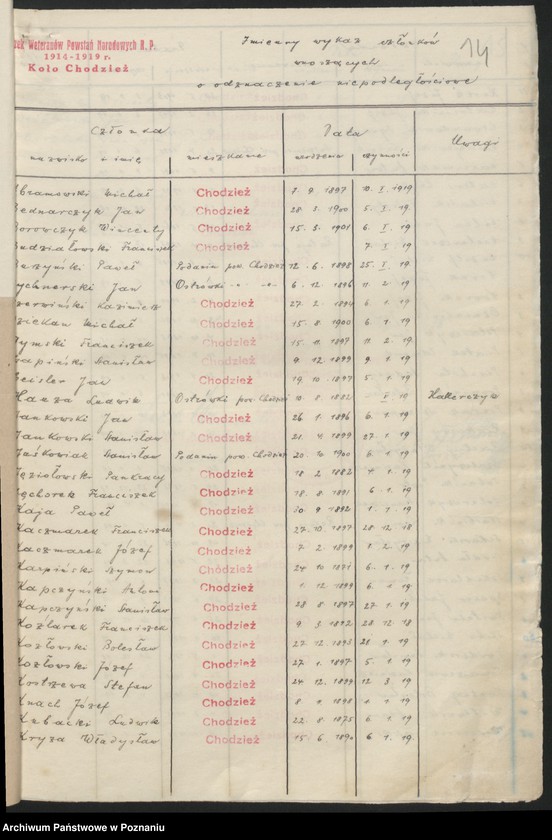 Weteranów Powstań Narodowych R. P.
1914-1919 r.
Koło Chodzież
Imienny wykaz członków
wnoszących
o odznaczenie niepodległościowe
14
Członka Data Uwagi
nazwisko i imię mieszkanie urodzenia czynności
Abramowski Michał Chodzież 7. 9. 1897 10. I. 1919
Bednarczyk Jan Chodzież 28. 5. 1900 5. I. 19
Borowczyk Wincenty Chodzież 15. 5. 1901 6. I. 19
Budziałowski Franciszek Chodzież 7. I. 19
Paweł Podanin pow. Chodzież 12. 6. 1898 25. I. 19
Jan Ostrówki 6. 12. 1896 11. 2. 19
Kazimierz Chodzież 27. 2. 1894 6. 1. 19
Michał Chodzież 15. 8. 1900 6. 1. 19
Franciszek Chodzież 15. 11. 1897 11. 2. 19
Stanisław Chodzież 9. 12. 1899 9. 1. 19
Geisler Jan Chodzież 19. 10. 1897 5. 1. 19
Ludwik Ostrówki pow. Chodzież 10. 8. 1882 I. 19 Hallerczyk
Jankowski Jan Chodzież 26. 1. 1896 6. 1. 19
Jankowski Stanisław Chodzież 21. 4. 1899 27. 1. 19
Jaśkowiak Stanisław Podanin pow. Chodzież 20. 10. 1900 6. 1. 19
Pankracy Chodzież 18. 2. 1882 1. 19
Franciszek Chodzież 18. 8. 1891 6. 1. 19
Kaja Paweł Chodzież 20. 9. 1892 1. 1. 19
Kaczmarek Franciszek Chodzież 27. 10. 1897 28. 12. 18
Kaczmarek Józef Chodzież 7. 2. 1899 1. 2. 19
Karpiński Szymon Chodzież 24. 10. 1871 6. 1. 19
Kapczyński Antoni Chodzież 1. 12. 1899 6. 1. 19
Kapczyński Stanisław Chodzież 28. 8. 1897 27. 1. 19
Koźlarek Franciszek Chodzież 9. 3. 1892 28. 12. 18
Kozłowski Bolesław Chodzież 27. 12. 1893 28. 1. 19
Kozłowski Józef Chodzież 27. 1. 1897 5. 1. 19
Kostrzewa Stefan Chodzież 24. 12. 1899 12. 3. 19
Knach Józef Chodzież 8. 1. 1898 1. 1. 19
Kubacki Ludwik Chodzież 22. 8. 1875 6. 1. 19
Kryza Władysław Chodzież 15. 6. 1890 6. 1. 19.
Archiwum Państwowe w Poznaniu